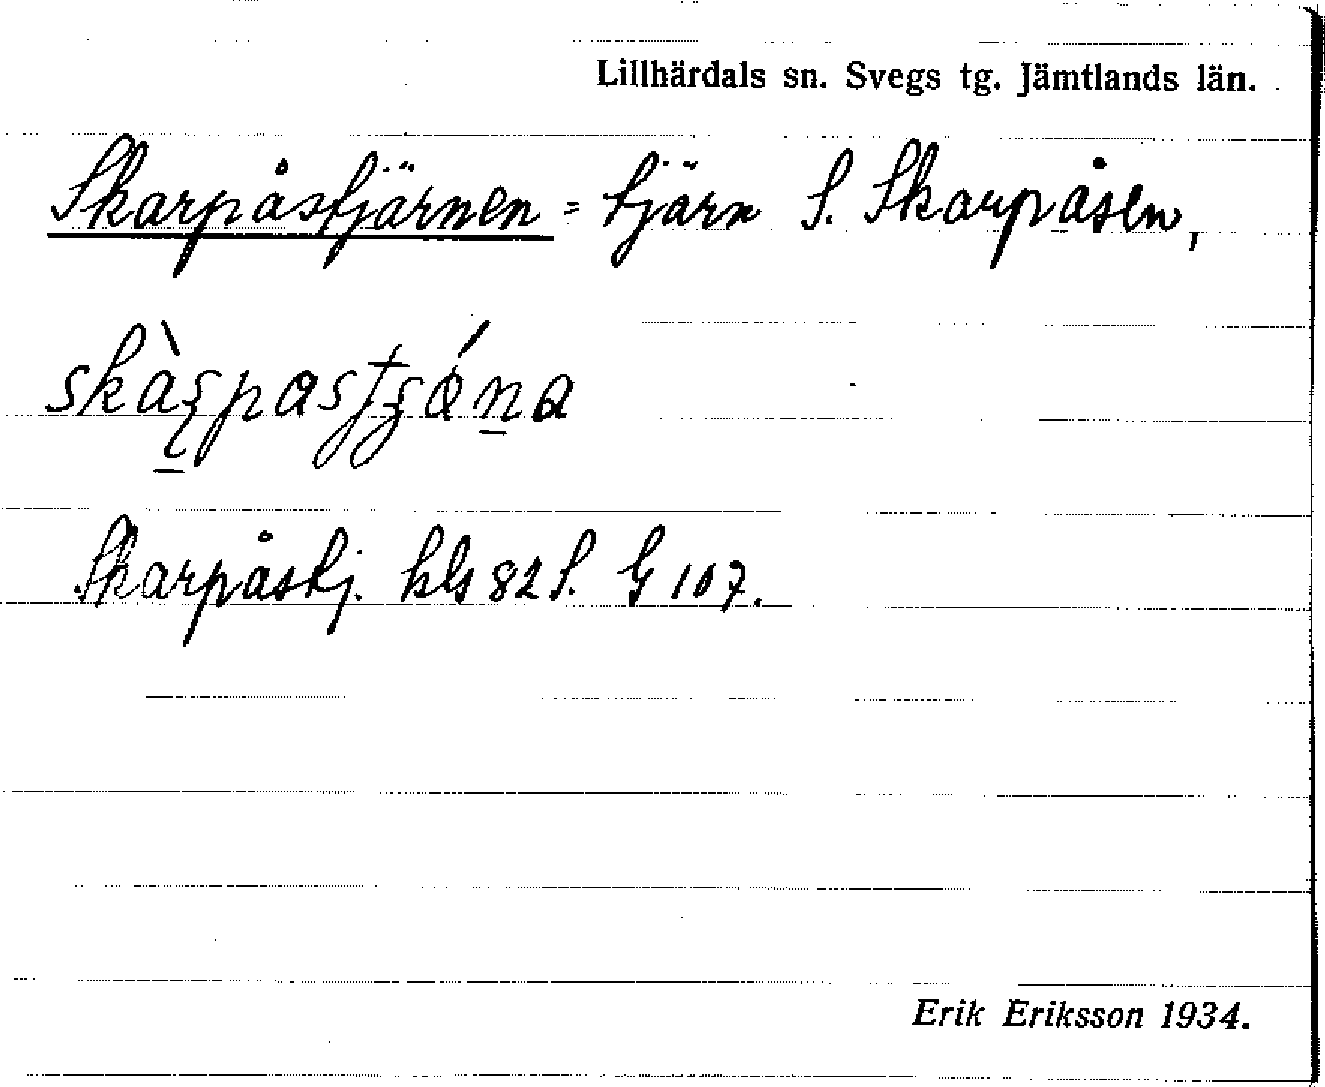 Lillhärdals sn. Svegs tg. Jämtlands län.
Skarpåstjärnen = tjärn S. Skarpåsen,
Skarpåstj. kbl 82 S. G 107.
Erik Eriksson 1934.